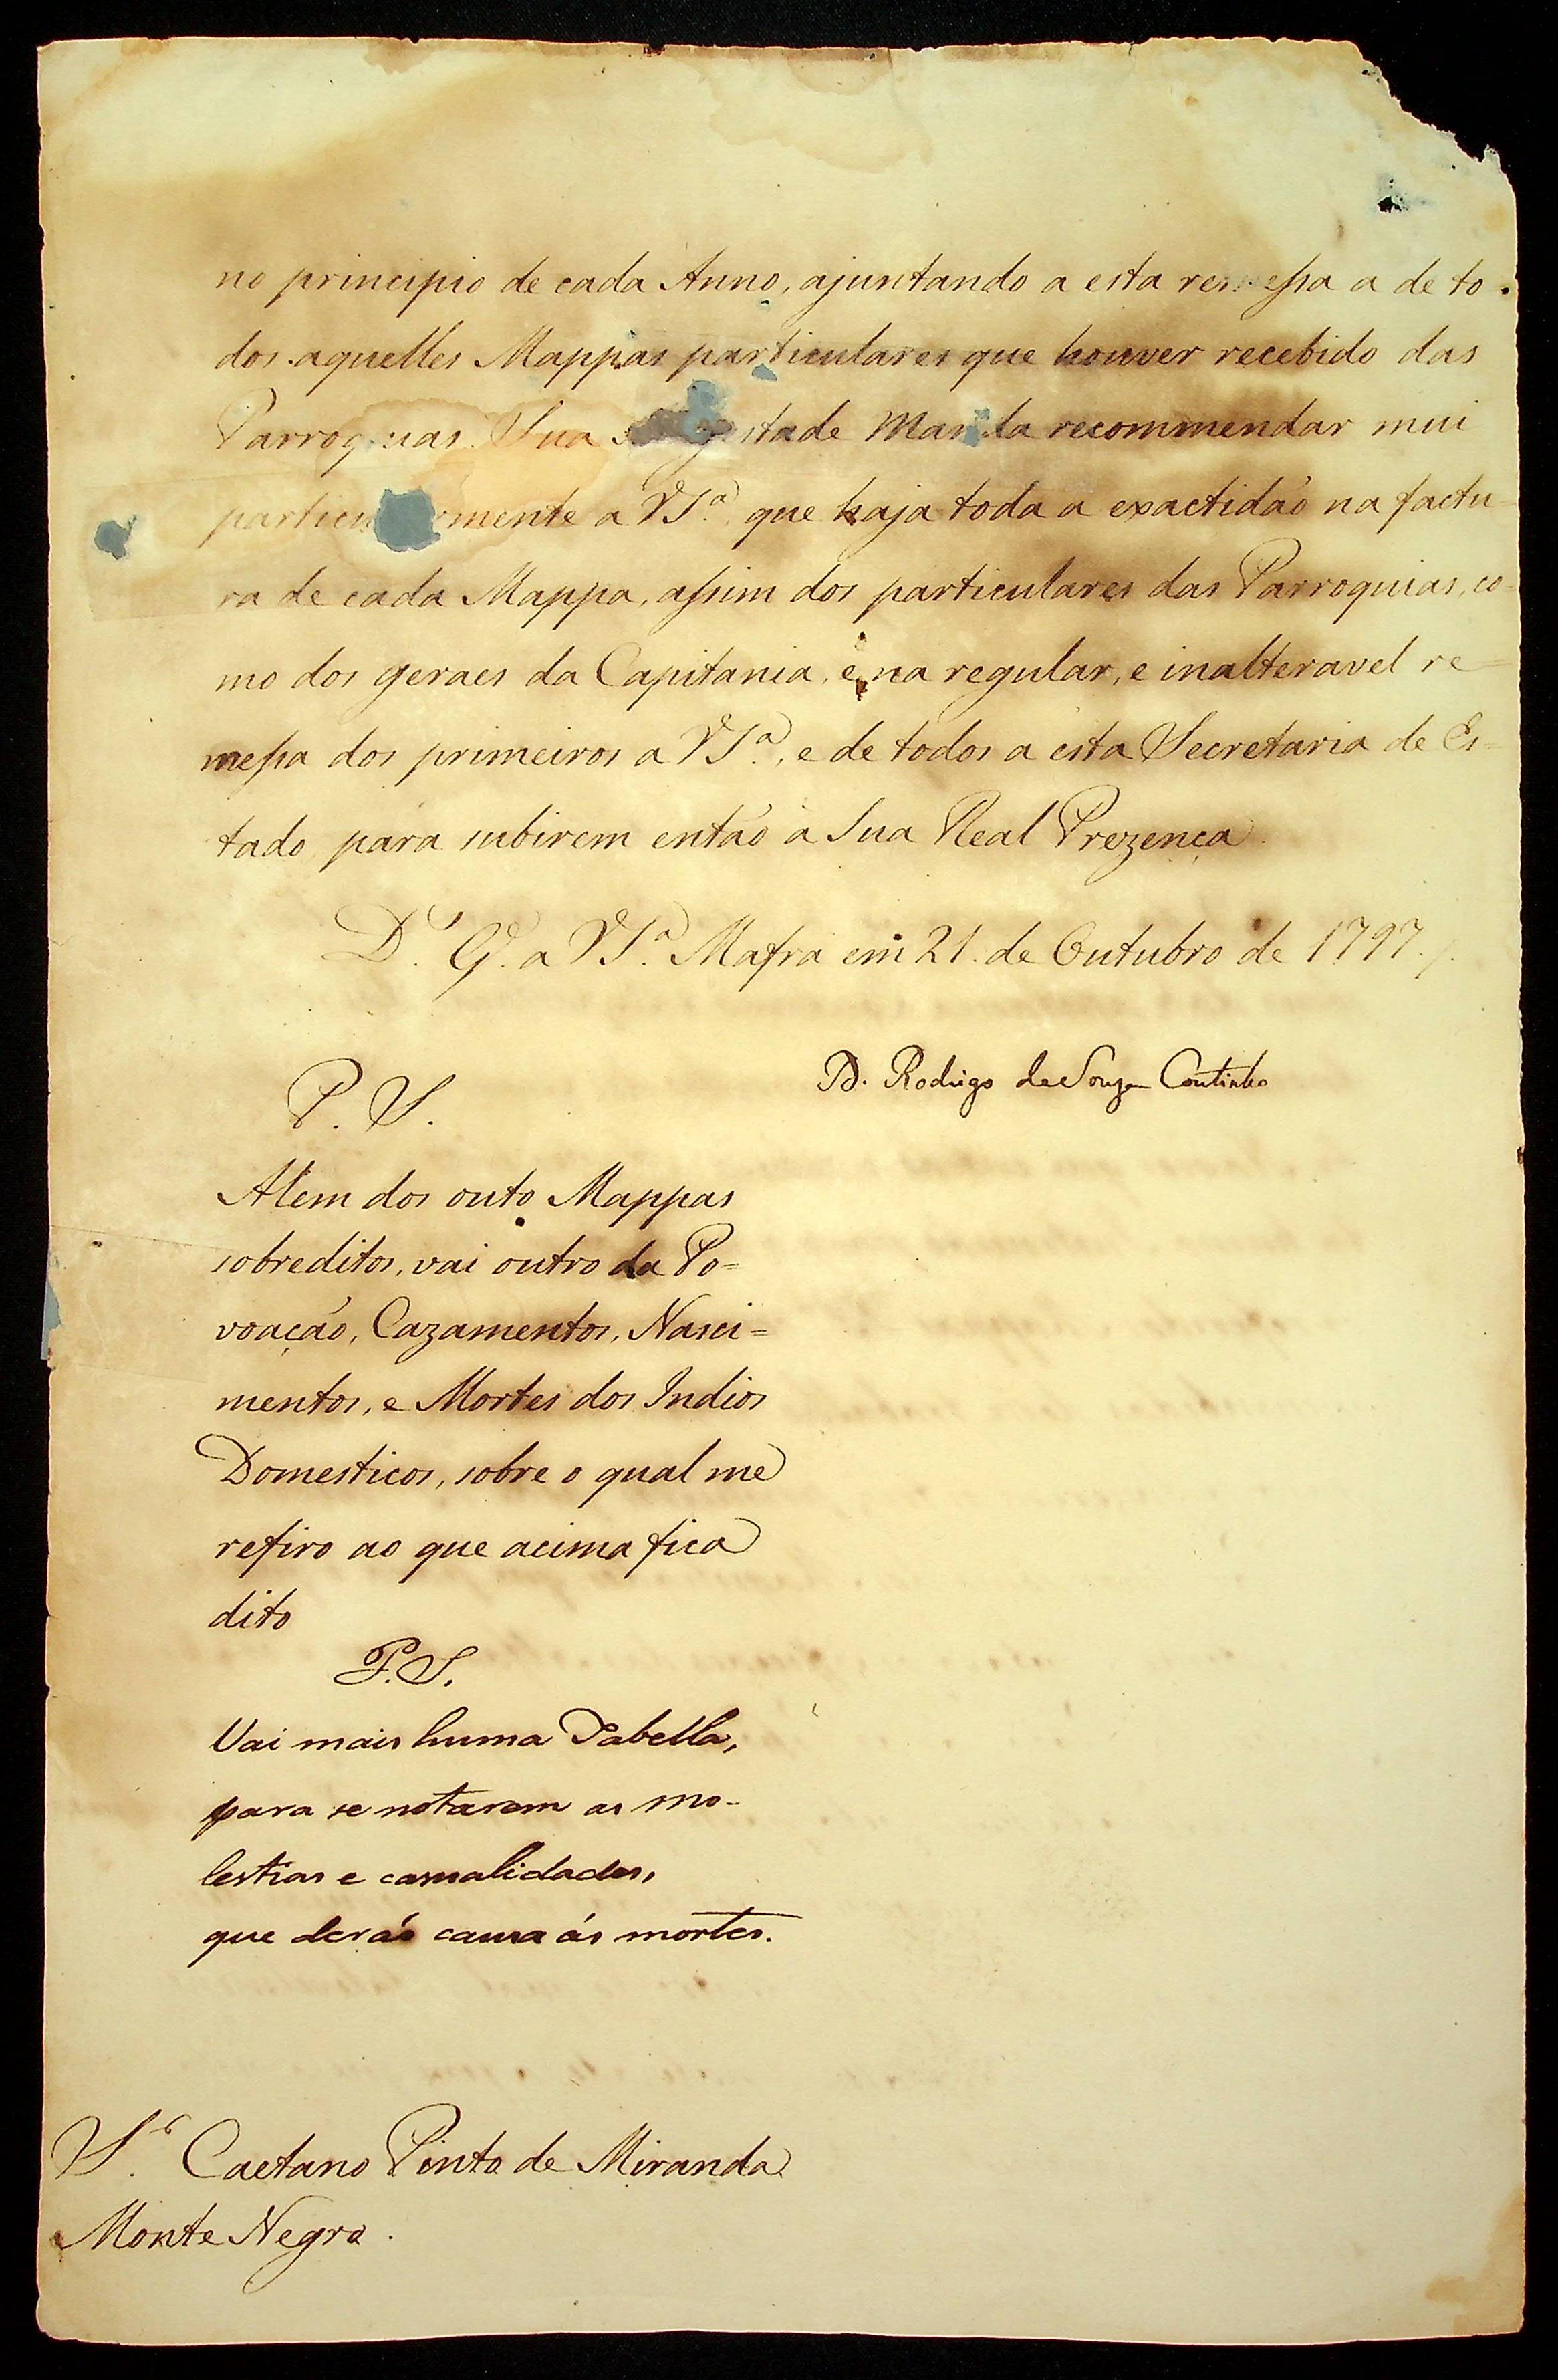 no principio de cada Anno, ajuntando a esta remessa a de to-
dos aquelles Mappas particulares que houver recebido das
Parroquias. Sua Magestade Manda recommendar mui
particularmente a VS.ª, que haja toda a exactidão na factu-
ra de cada Mappa, assim dos particulares das Parroquias, co-
mo dos geraes da Capitania, e na regular, e inalteravel re-
messa dos primeiros a VS.ª, e de todos a esta Secretaria de Es=
tado para subirem então á Sua Real Prezença.
D.s G.e a VS.ª Mafra em 21. de Outubro de 1797.
D. Rodrigo de Souza Coutinho
P. S.
Alem dos outo Mappas
sobreditos, vai outro da Po=
voação, Cazamentos, Nasci=
mentos, e Mortes dos Indios
Domesticos, sobre o qual me
refiro ao que acima fica
dito
P. S.
Vai mais huma Tabella,
para se notarem as mo-
lestias e casualidades,
que derão causa ás mortes.
S.r Caetano Pinto de Miranda
Monte Negro.